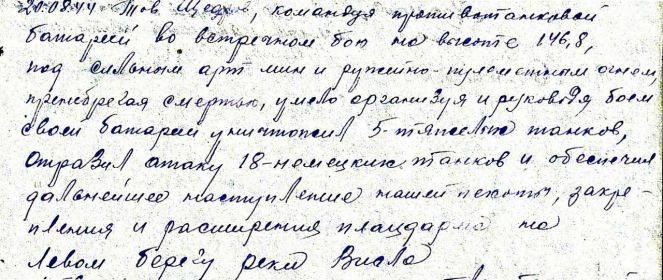 20.08.44 Тов. Щедров, командуя противотанковой
батареей во встречном бою на высоте 146,8,
под сильным арт мин и ружейно-пулеметным огнем,
пренебрегая смертью, умело организуя и руководя боем
своей батареи уничтожил 5-тяжелых танков,
отразил атаку 18-немецких танков и обеспечил
дальнейшее наступление нашей пехоты, закре-
пления и расширения плацдарма на
левом берегу реки Висла